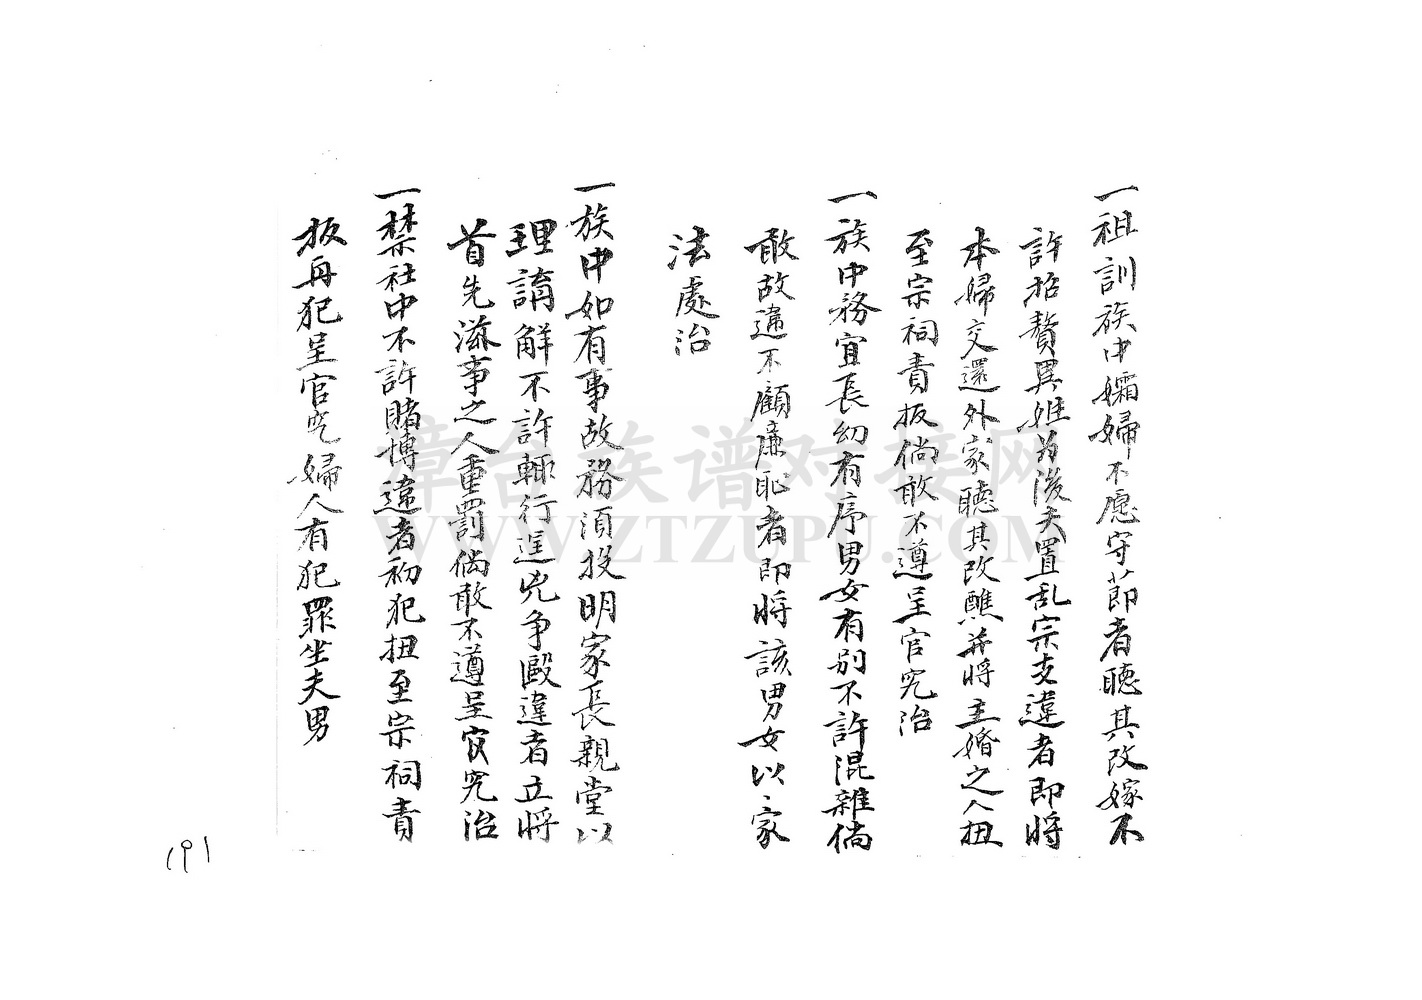 一祖訓族中孀婦不愿守節者聽其改嫁不
許招贅異姓为後夫置乱宗支違者即將
本婦交還外家聽其改醮并將主婚之人扭
至宗祠責板倘敢不遵呈官究治
一族中務宜長幼有序男女有别不許混雜倘
敢故違不顧廉恥者即將該男女以家
法處治
一族中如有事故務須投明家長親堂以
理講解不許輒行逞兇争毆違者立將
首先滋事之人重罰倘敢不遵呈官究治
一禁社中不許賭博違者初犯扭至宗祠責
板再犯呈官究婦人有犯罪坐夫男
191
漳台族谱对接网
WWW.ZTZUPU.COM